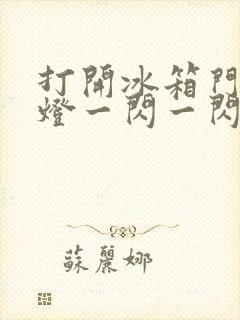 打開冰箱門
燈一閃一閃
蘇麗娜